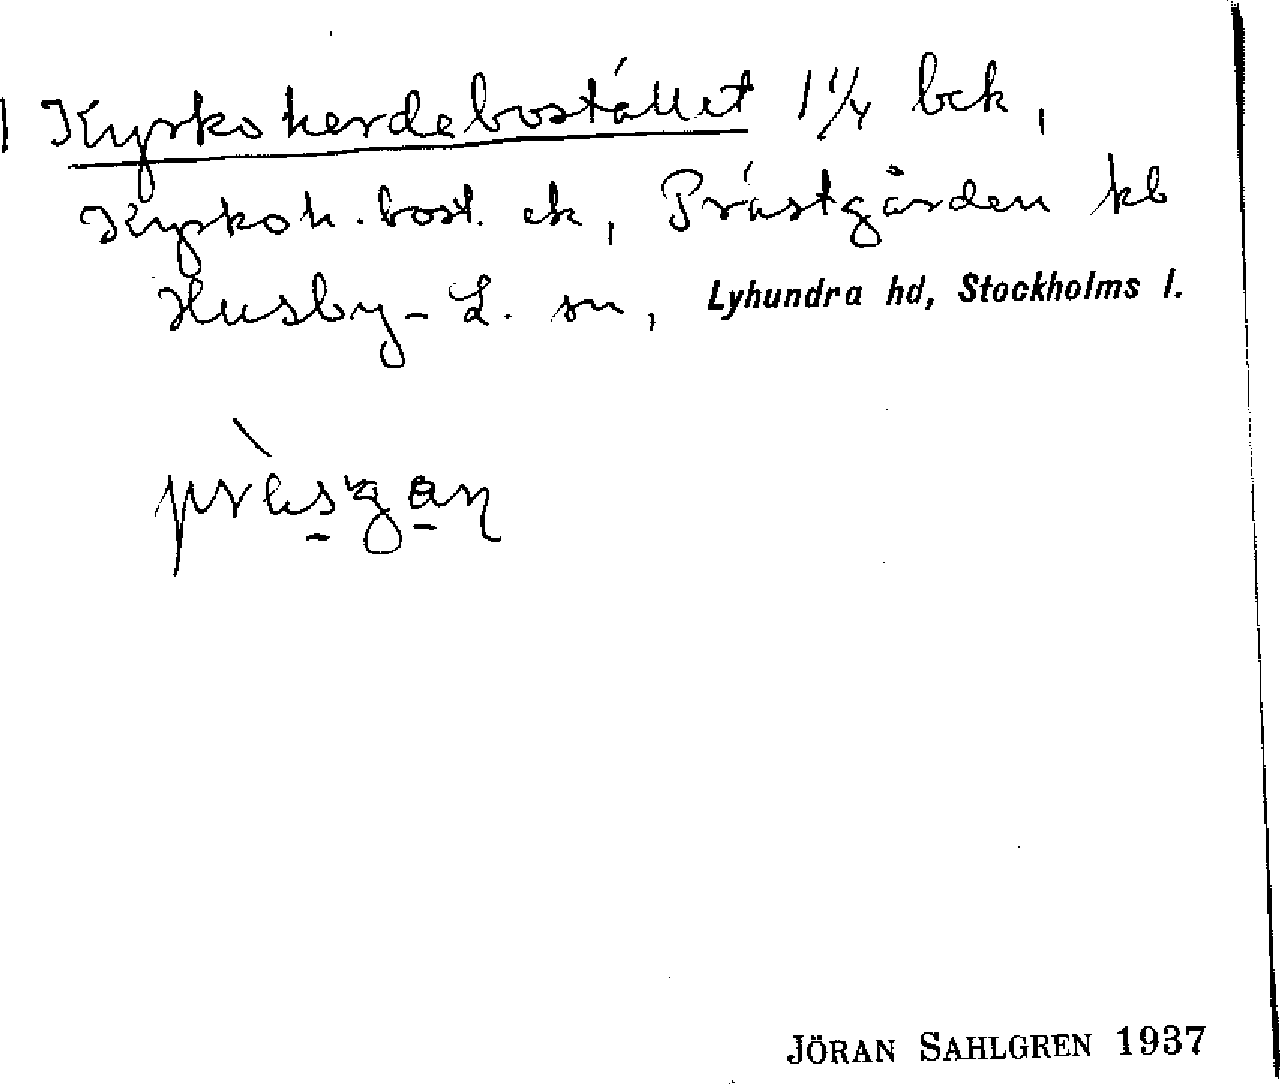 Kyrkoherdebostället 1 1/4 bek,
Kyrkoh. bost. ek, Prästgården kb
Husby-L. sn, Lyhundra hd, Stockholms l.
JÖRAN SAHLGREN 1937